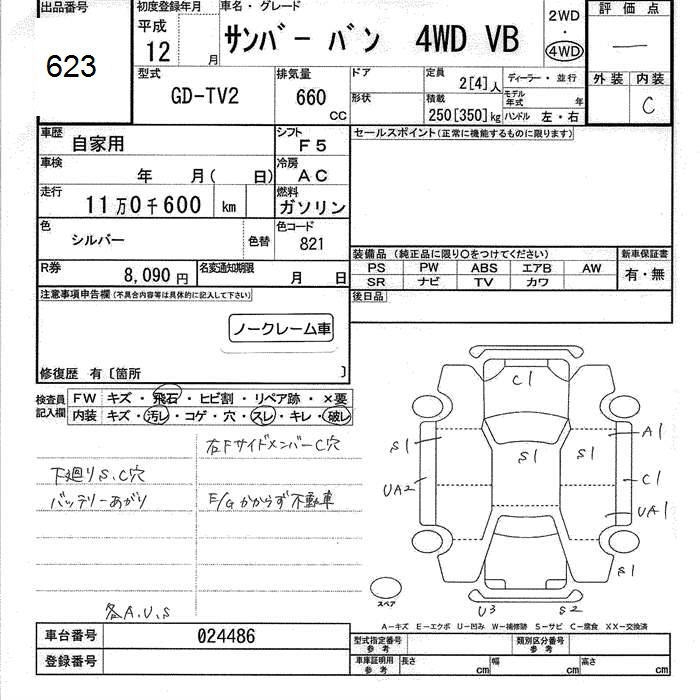 出品番号 初度登録年月 車名・グレード 2WD 評価点
623 平成 12 年 月 サンバー バン 4WD VB ・ 4WD —
型式 排気量 ドア 定員 ディーラー・並行 外装 内装
GD-TV2 660 CC 形状 2[4]人 モデル年式 年 C
積載 250[350]kg ハンドル 左・右
車歴 自家用 シフト F5 セールスポイント(正常に機能するものに限ります)
車検 年 月( 日) 冷房 AC
走行 11万0千600 km 燃料 ガソリン
色 シルバー 色替 色コード 821
装備品 (純正品に限り○をつけてください) 新車保証書
R券 8,090円 名変通知期限 月 日 PS PW ABS エアB AW 有・無
SR ナビ TV カワ
注意事項申告欄(不具合内容等は具体的に記入して下さい) 後日品
ノークレーム車
修復歴 有〔箇所 〕
検査員 FW キズ・飛石・ヒビ割・リペア跡・×要
記入欄 内装 キズ・汚レ・コゲ・穴・スレ・キレ・破レ
右FサイドメンバーC穴
下廻りS.C穴
バッテリーあがり E/Gかからず不動車
各A.U.S
C1
S1 S1 S1 A1
UA2 C1
UA1
S1
スペア U3 S2
A−キズ E−エクボ U−凹み W−補修跡 S−サビ C−腐食 XX−交換済
車台番号 024486 型式指定番号 参考 類別区分番号 参考
登録番号 車庫証明用 参考 長さ cm 幅 cm 高さ cm